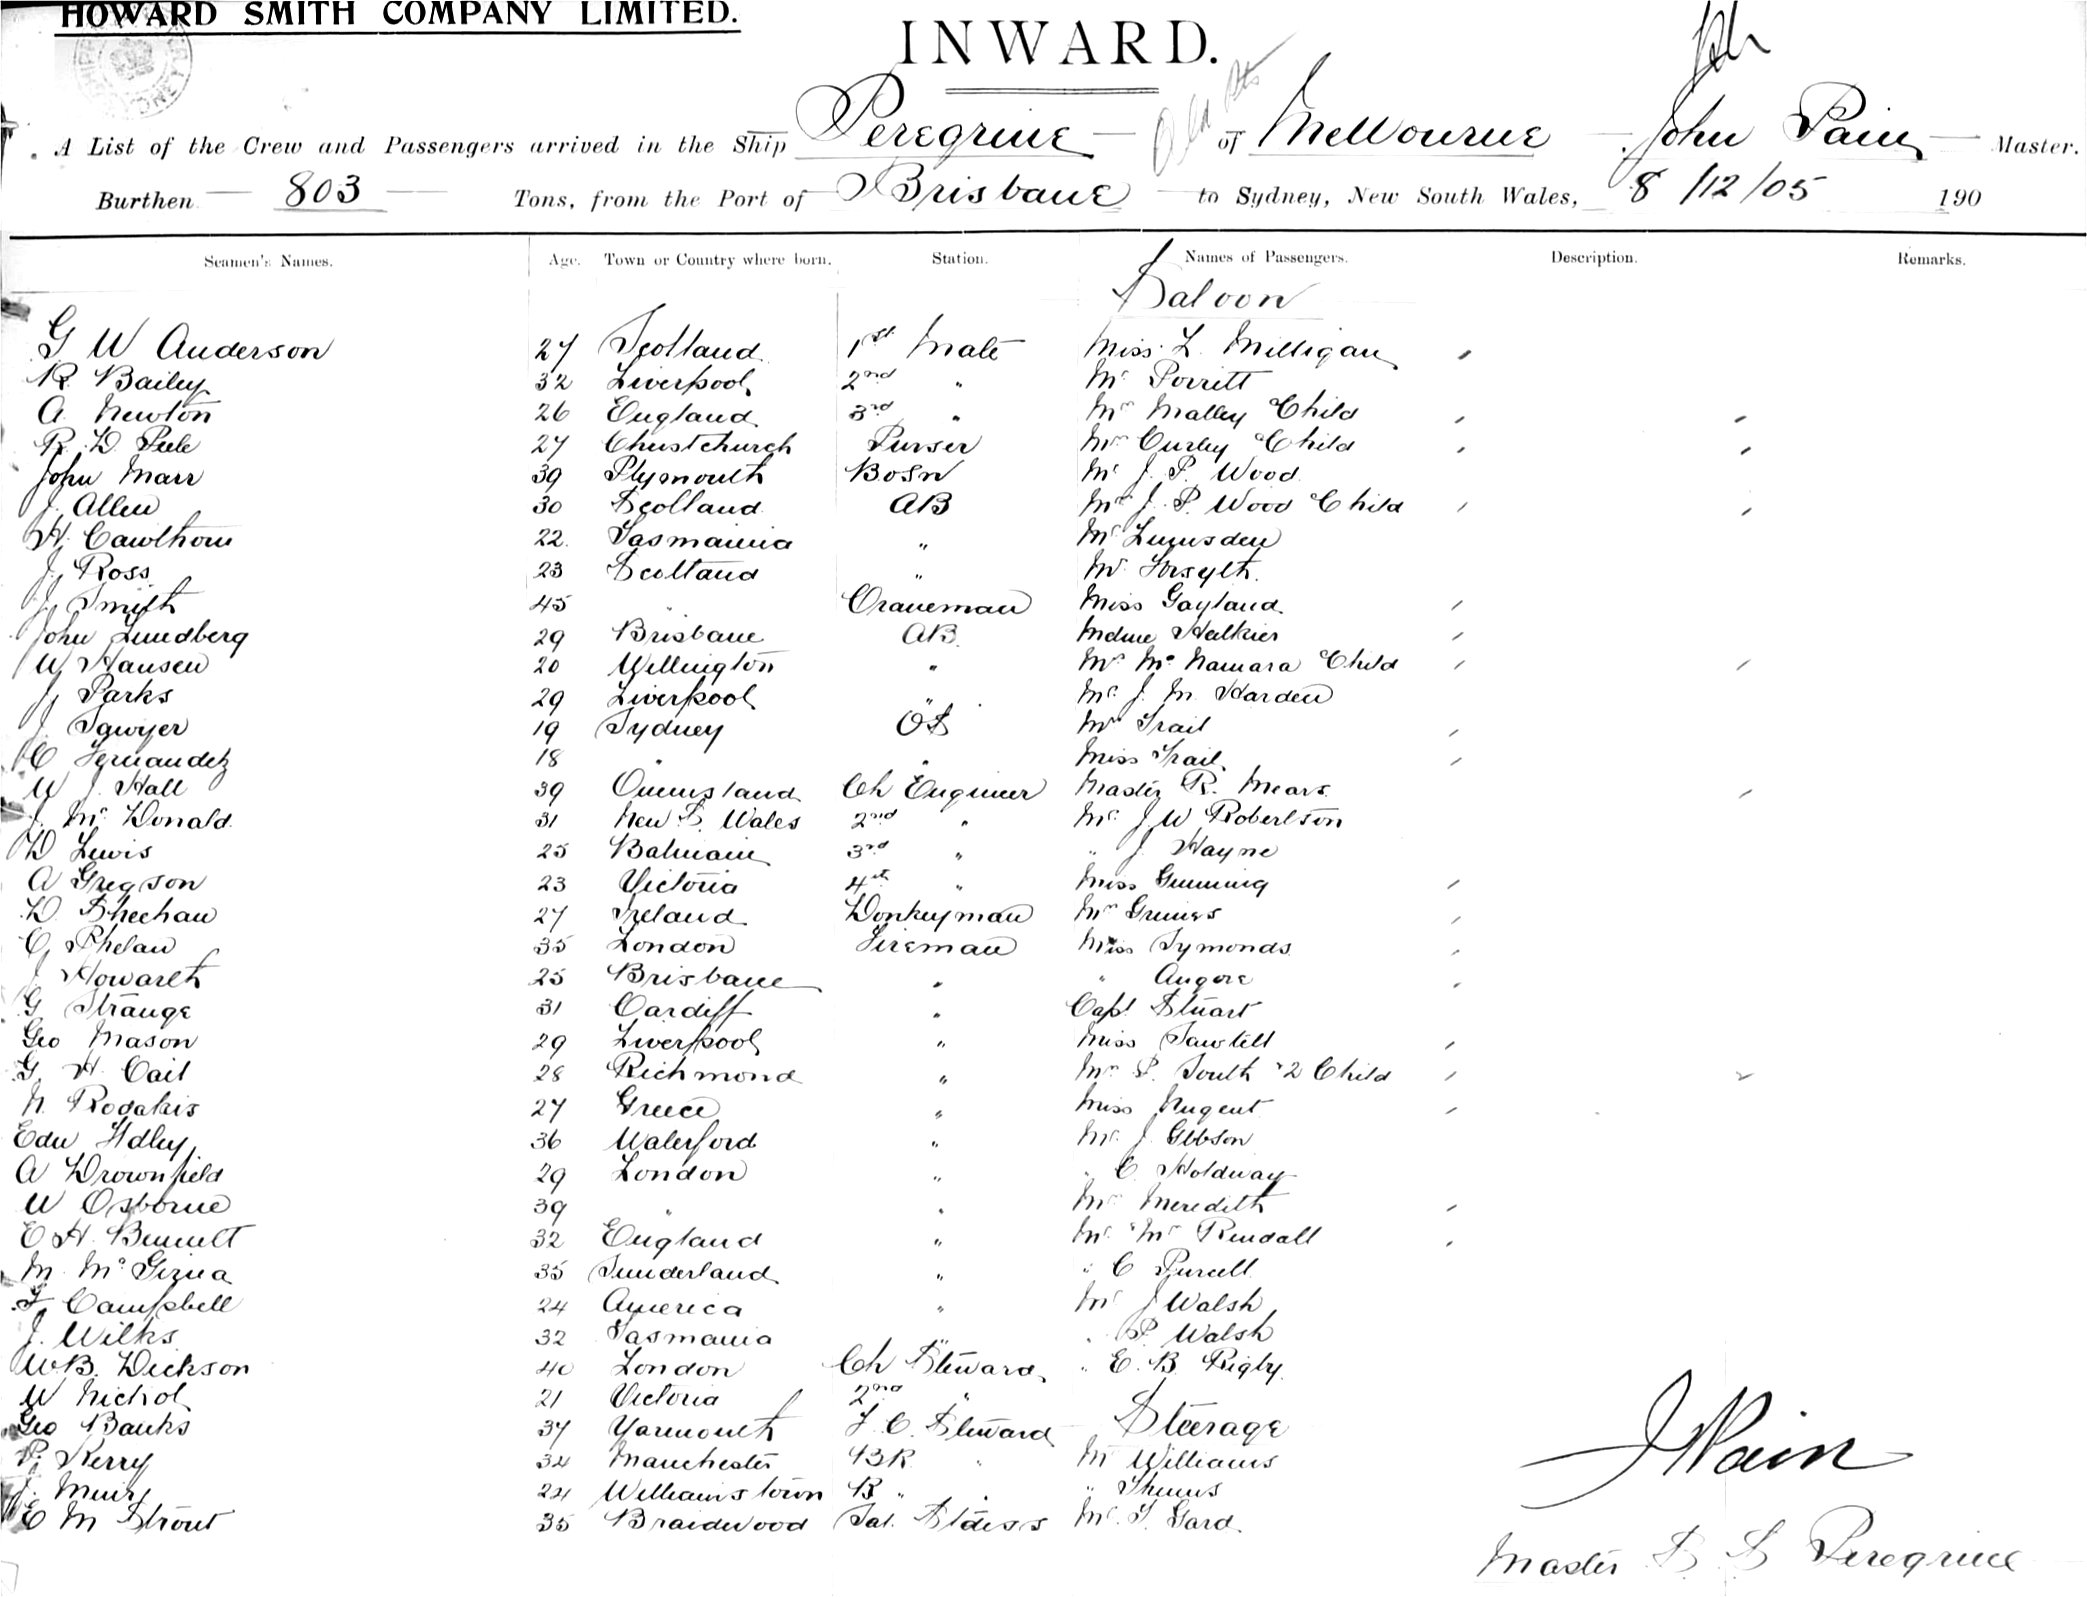 HOWARD SMITH COMPANY LIMITED.
INWARD.
A List of the Crew and Passengers arrived in the Ship Peregrine of Melbourne John Pain Master.
Burthen 803 Tons, from the Port of Brisbane to Sydney, New South Wales, 8/12/05 190
Seamen's Names. Age. Town or Country where born. Station. Names of Passengers. Description. Remarks.
Saloon
G W Anderson 27 Scotland 1st Mate Miss L. Milligan
R. Bailey 32 Liverpool 2nd " Mr Porritt
A. Newton 26 England 3rd " Mrs Malley Child
R. D. Peele 27 Christchurch Purser Mrs Curley Child
John Marr 39 Plymouth Bosn Mr J. P. Wood
J. Allen 30 Scotland AB Mrs J. P. Wood Child
H. Cawthorn 22. Tasmania " Mr Lumsden
J. Ross 23 Scotland " Mr. Forsyth.
J. Smith 45 " Craneman Miss Gayland
John Lundberg 29 Brisbane AB. Mdme Halkier
W Hansen 20 Wellington " Mrs McNamara Child
J Parks 29 Liverpool " Mr. J. M. Harden
J. Sawyer 19 Sydney OS Mrs Trail
C Fernandez 18 " " Miss Trail
W J. Hall 39 Queensland Ch Engineer Master R. Mears
J. Mc Donald 31 New S. Wales 2nd " Mr. J W Robertson
D Lewis 25 Balmain 3rd " " J. Hayne
A Gregson 23 Victoria 4th " Miss Gumming
D. Sheehan 27 Ireland Donkeyman Mrs Grimes
C. Phelan 35 London Fireman Miss Symonds
J Howarth 25 Brisbane " " Angore
G Strange 31 Cardiff " Capt Stuart
Geo Mason 29 Liverpool " Miss Sawtell
G. H. Cail 28 Richmond " Mrs P. South & 2 Child
N. Rodakis 27 Greece " Miss Nugent
Edw Adley 36 Waterford " Mr. J Gibson
A Drownfield 29 London " " C. Holdway
W Osborne 39 " " Mrs Meredith
E H. Bennett 32 England " Mr. & Mrs Rendall
M. Mc Girna 35 Sunderland " " C Purcell
F Campbell 24 America " Mr J Walsh
J. Wilks 32 Tasmania " " P Walsh
W.B. Dickson 40 London Ch Steward " E. B. Rigby.
W Nichol 21 Victoria 2nd "
Geo Banks 37 Yarmouth F. C. Steward Steerage
P. Kerry 34 Manchester BR " Mr Williams
J. Muir 24 Williamstown B " "
E M Strout 35 Braidwood Sal. Stdess Mr. T. Gard
J Pain
Master S. S Peregrine